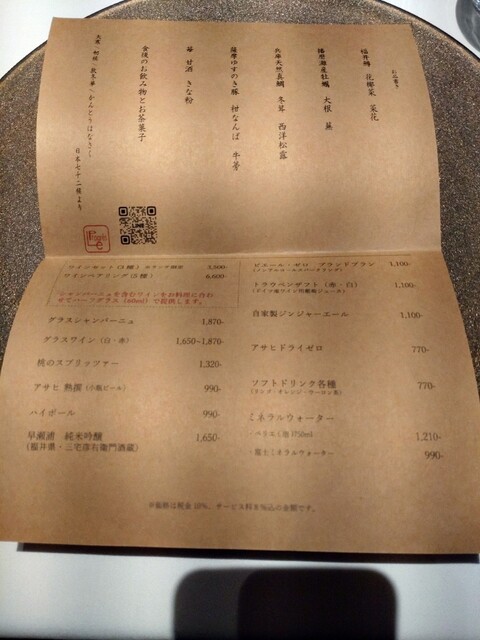 お品書き
福井鰆 花椰菜 菜花
播磨灘産牡蠣 大根 葱
兵庫天然真鯛 冬茸 西洋松露
薩摩ゆすのき豚 柑なんば 牛蒡
苺 甘酒 きな粉
食後のお飲み物とお茶菓子
大寒 初候〜款冬華〜かんとうはなさく
日本七十二候より
LINE
ワインセット(3種) 3,500-
ワインペアリング(5種) 6,600-
シャンパーニュを含むワインをお料理に合わ
せてハーフグラス(60ml)で提供します。
グラスシャンパーニュ 1,870-
グラスワイン(白・赤) 1,650~1,870-
桃のスプリッツァー 1,320-
アサヒ 熟撰(小瓶ビール) 990-
ハイボール 990-
早瀬浦 純米吟醸 1,650-
(福井県・三宅彦右衛門酒蔵)
ピエール・ゼロ ブランドブラン 1,100-
(ノンアルコールスパークリング)
トラウベンザフト(赤・白) 1,100-
(ドイツ産ワイン用葡萄ジュース)
自家製ジンジャーエール 1,100-
アサヒドライゼロ 770-
ソフトドリンク各種 770-
(リンゴ・オレンジ・ウーロン茶)
ミネラルウォーター
・ペリエ(瓶 750ml) 1,210-
・富士ミネラルウォーター 990-
※価格は税金10%、サービス料を含む込の金額です。